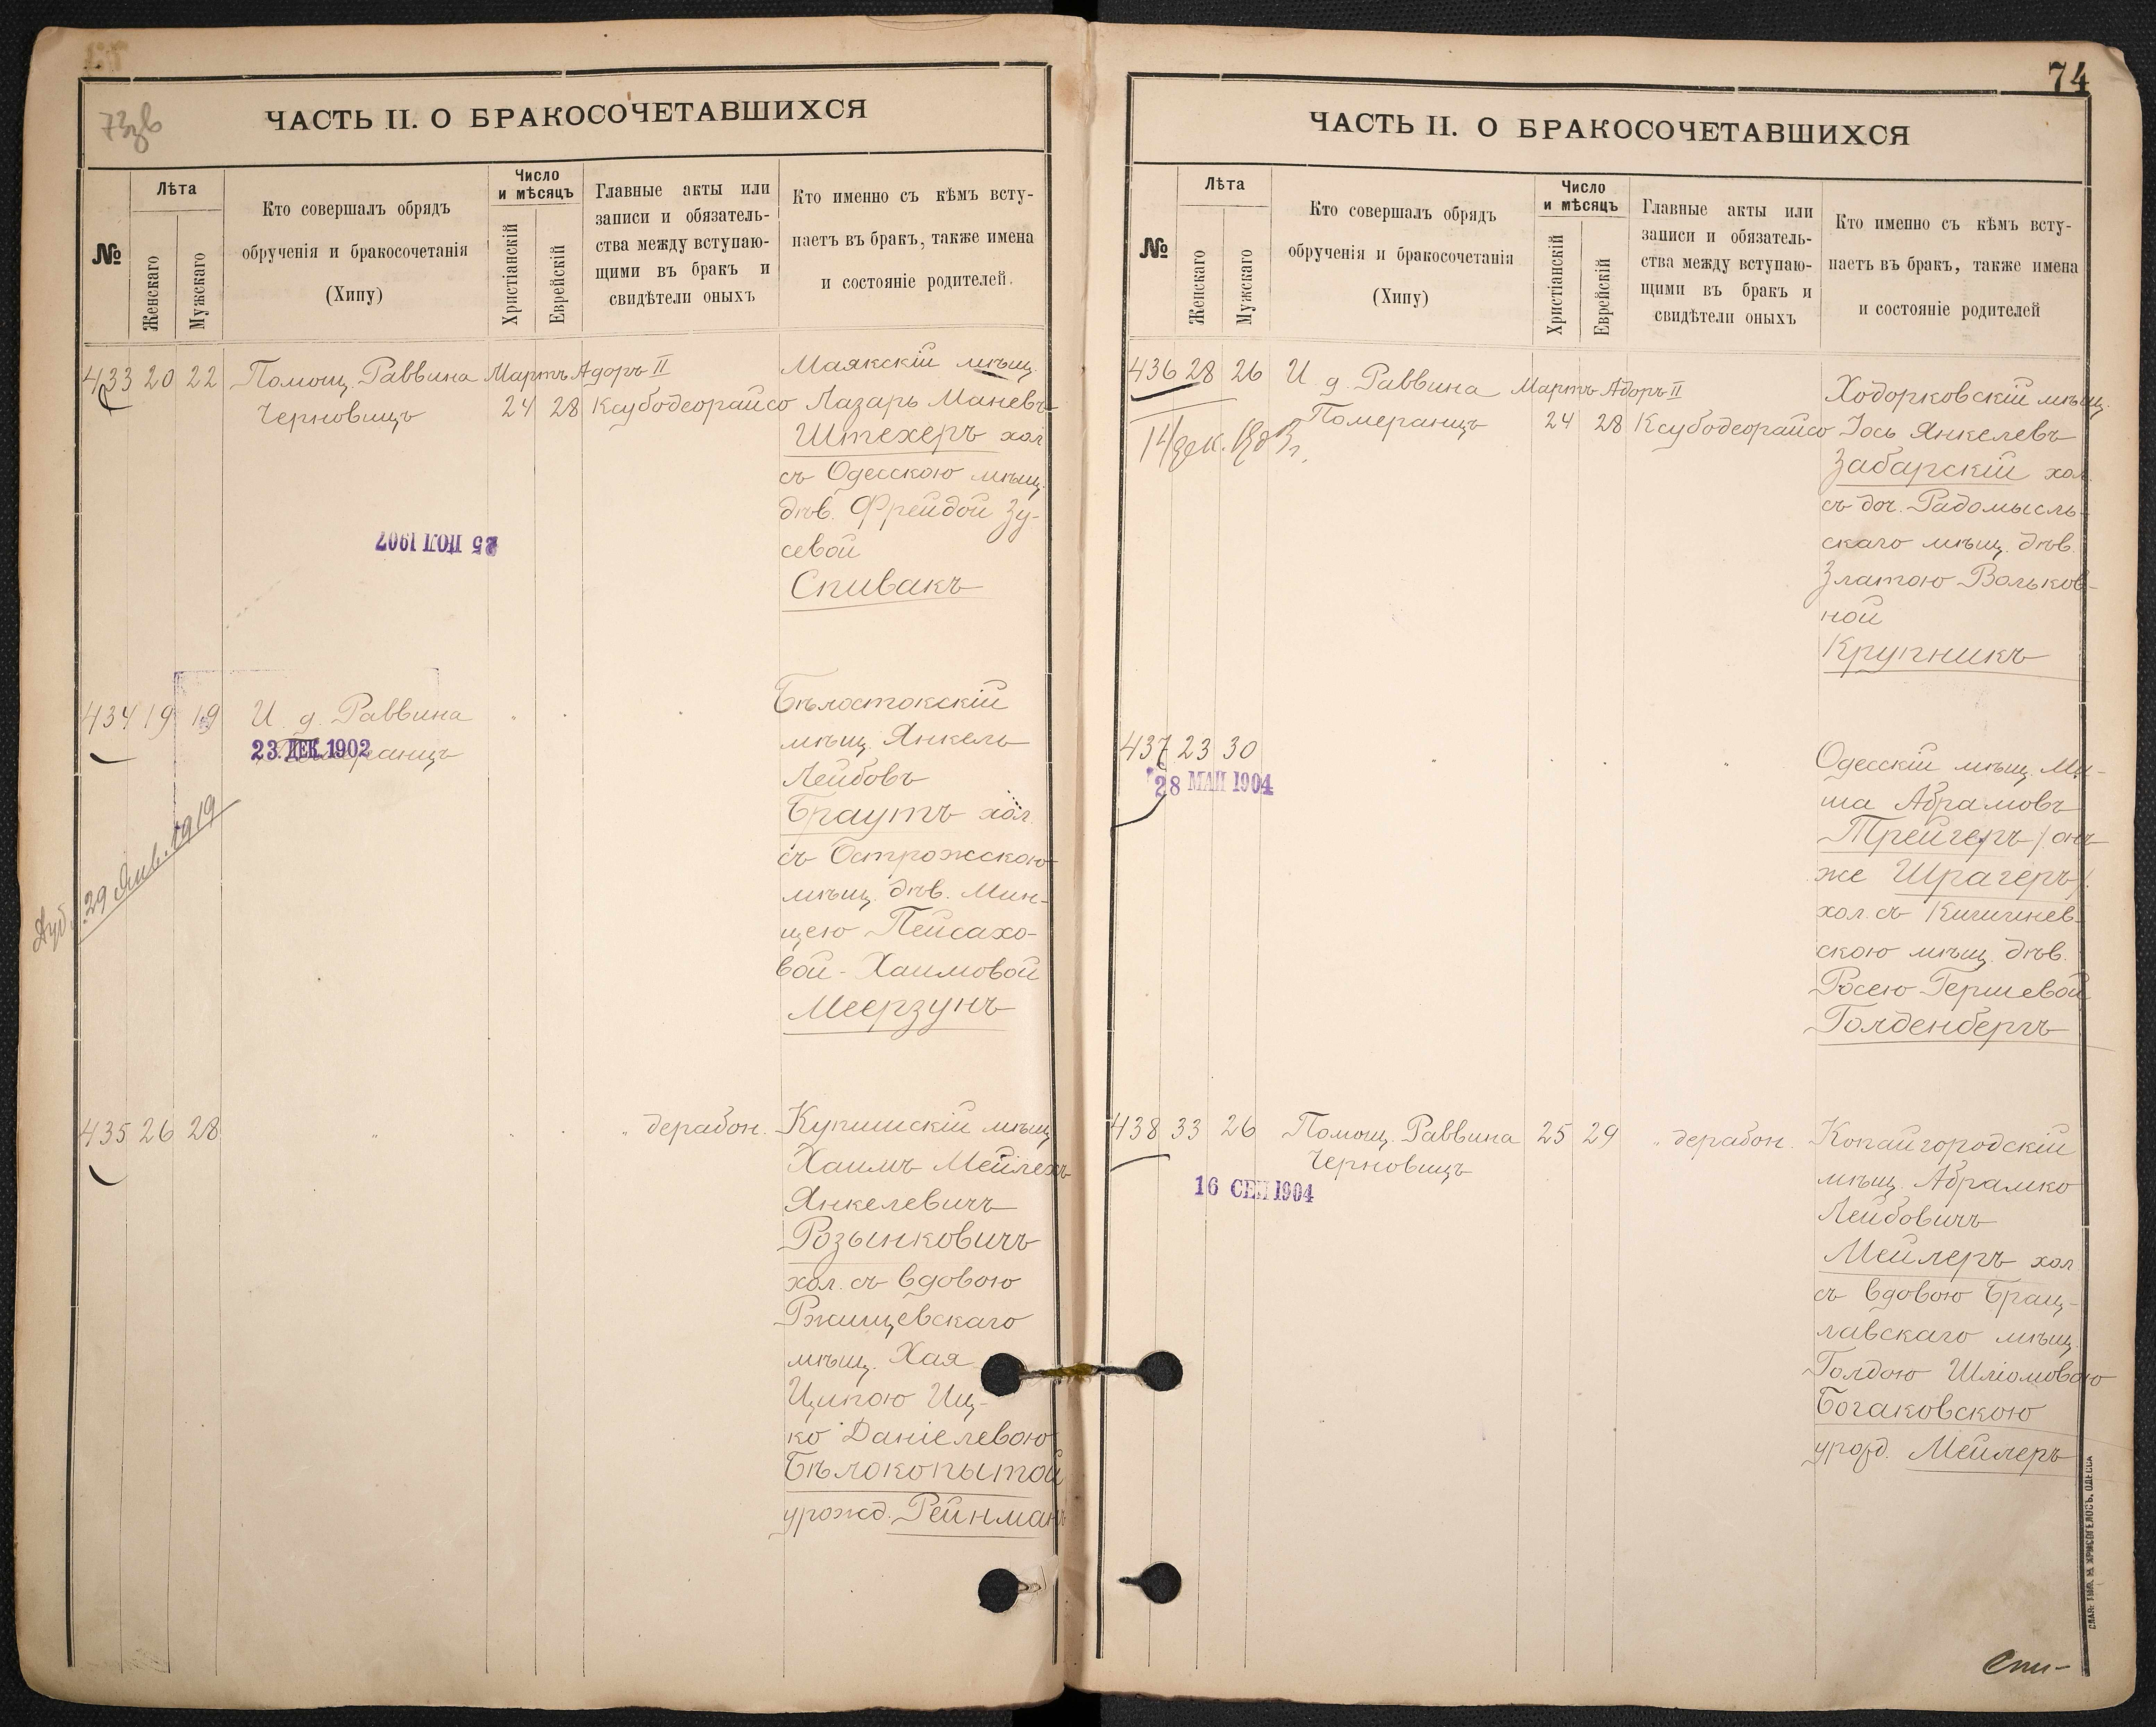 73зв
ЧАСТЬ II. О БРАКОСОЧЕТАВШИХСЯ
№
Лѣта
Женскаго
Мужскаго
Кто совершалъ обрядъ
обрученія и бракосочетанія
(Хипу)
Число
и мѣсяцъ
Христіанскій
Еврейскій
Главные акты или
записи и обязатель-
ства между вступаю-
щими въ бракъ и
свидѣтели оныхъ
Кто именно съ кѣмъ всту-
паетъ въ бракъ, также имена
и состояніе родителей.
433 20 22 Помощ. Раввина Мартъ Адоръ II
Черновицъ 24 28 Ксубодеорайсо
Маякскій мѣщ.
Лазарь Маневъ
Штехеръ хол
съ Одесскою мѣщ.
дѣв. Фрейдой Зу-
севой
Спивакъ
25 ІЮЛ 1907
434 19 19 И. д. Раввина " " "
Померанцъ
23. ДЕК. 1902
29 Янв. 1919
Бѣлостокскій
мѣщ. Янкель
Лейбовъ
Браутъ хол.
съ Острожскою
мѣщ. дѣв. Мин-
цею Пейсахо-
вой-Хаимовой
Меерзунъ
435 26 28 " " " " дерабон.
Купишскій мѣщ
Хаимъ Мейлехъ
Янкелевичъ
Розынковичъ
хол. съ вдовою
Ржищевскаго
мѣщ. Хая
Ципою Иц-
ко Даніелевою
Бѣлокопытой
урожд. Рейнманъ
74
ЧАСТЬ II. О БРАКОСОЧЕТАВШИХСЯ
№
Лѣта
Женскаго
Мужскаго
Кто совершалъ обрядъ
обрученія и бракосочетанія
(Хипу)
Число
и мѣсяцъ
Христіанскій
Еврейскій
Главные акты или
записи и обязатель-
ства между вступаю-
щими въ бракъ и
свидѣтели оныхъ
Кто именно съ кѣмъ всту-
паетъ въ бракъ, также имена
и состояніе родителей
436 28 26 И. д. Раввина Мартъ Адоръ II
Померанцъ 24 28 Ксубодеорайсо
14/дек.
Ходорковскій мѣщ.
Іось Янкелевъ
Забарскій хол.
съ доч. Радомысль-
скаго мѣщ. дѣв.
Златою Вольков-
ной
Крупникъ
437 23 30 " " " "
28 МАЙ 1904
Одесскій мѣщ. Ми-
ша Абрамовъ
Трейгеръ /онъ
же Шрагеръ/
хол. съ Кишинев-
скою мѣщ. дѣв.
Росею Гершевой
Голденбергъ
438 33 26 Помощ. Раввина 25 29 " дерабон.
Черновицъ
16 СЕН 1904
Копайгородскій
мѣщ. Абрамко
Лейбовичъ
Мейлеръ хол
съ вдовою Брац-
лавскаго мѣщ.
Голдою Шліомовою
Богаковскою
урожд. Мейлеръ
Спи-